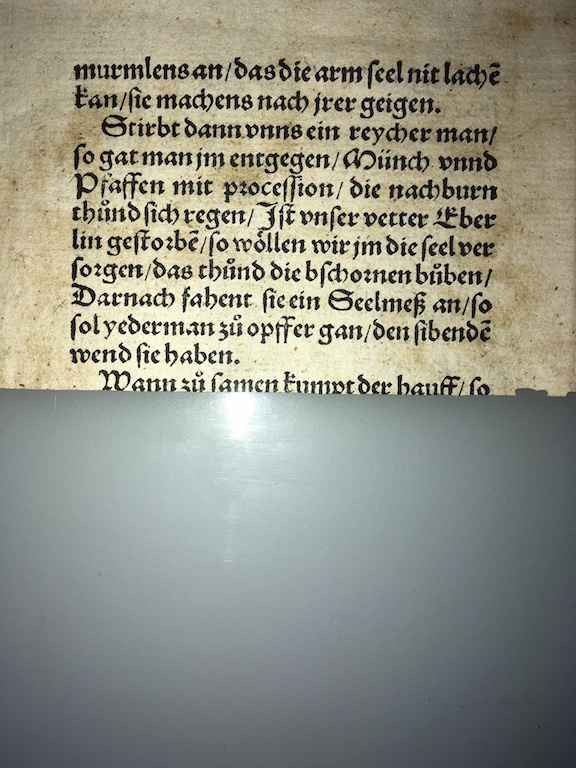 murmlens an/das die arm seel nit lachē
kan/sie machens nach jrer geigen.
Stirbt dann vnns ein reycher man/
so gat man jm entgegen/Münch vnnd
Pfaffen mit procession/ die nachburn
thůnd sich regen/Jst vnser vetter Eber
lin gestorbē/so wöllen wir jm die seel ver
sorgen/das thůnd die bschornen bůben/
Darnach fahent sie ein Seelmeß an/so
sol yederman zů opffer gan/den sibendē
wend sie haben.
Wann zů samen kumpt der hauff/so